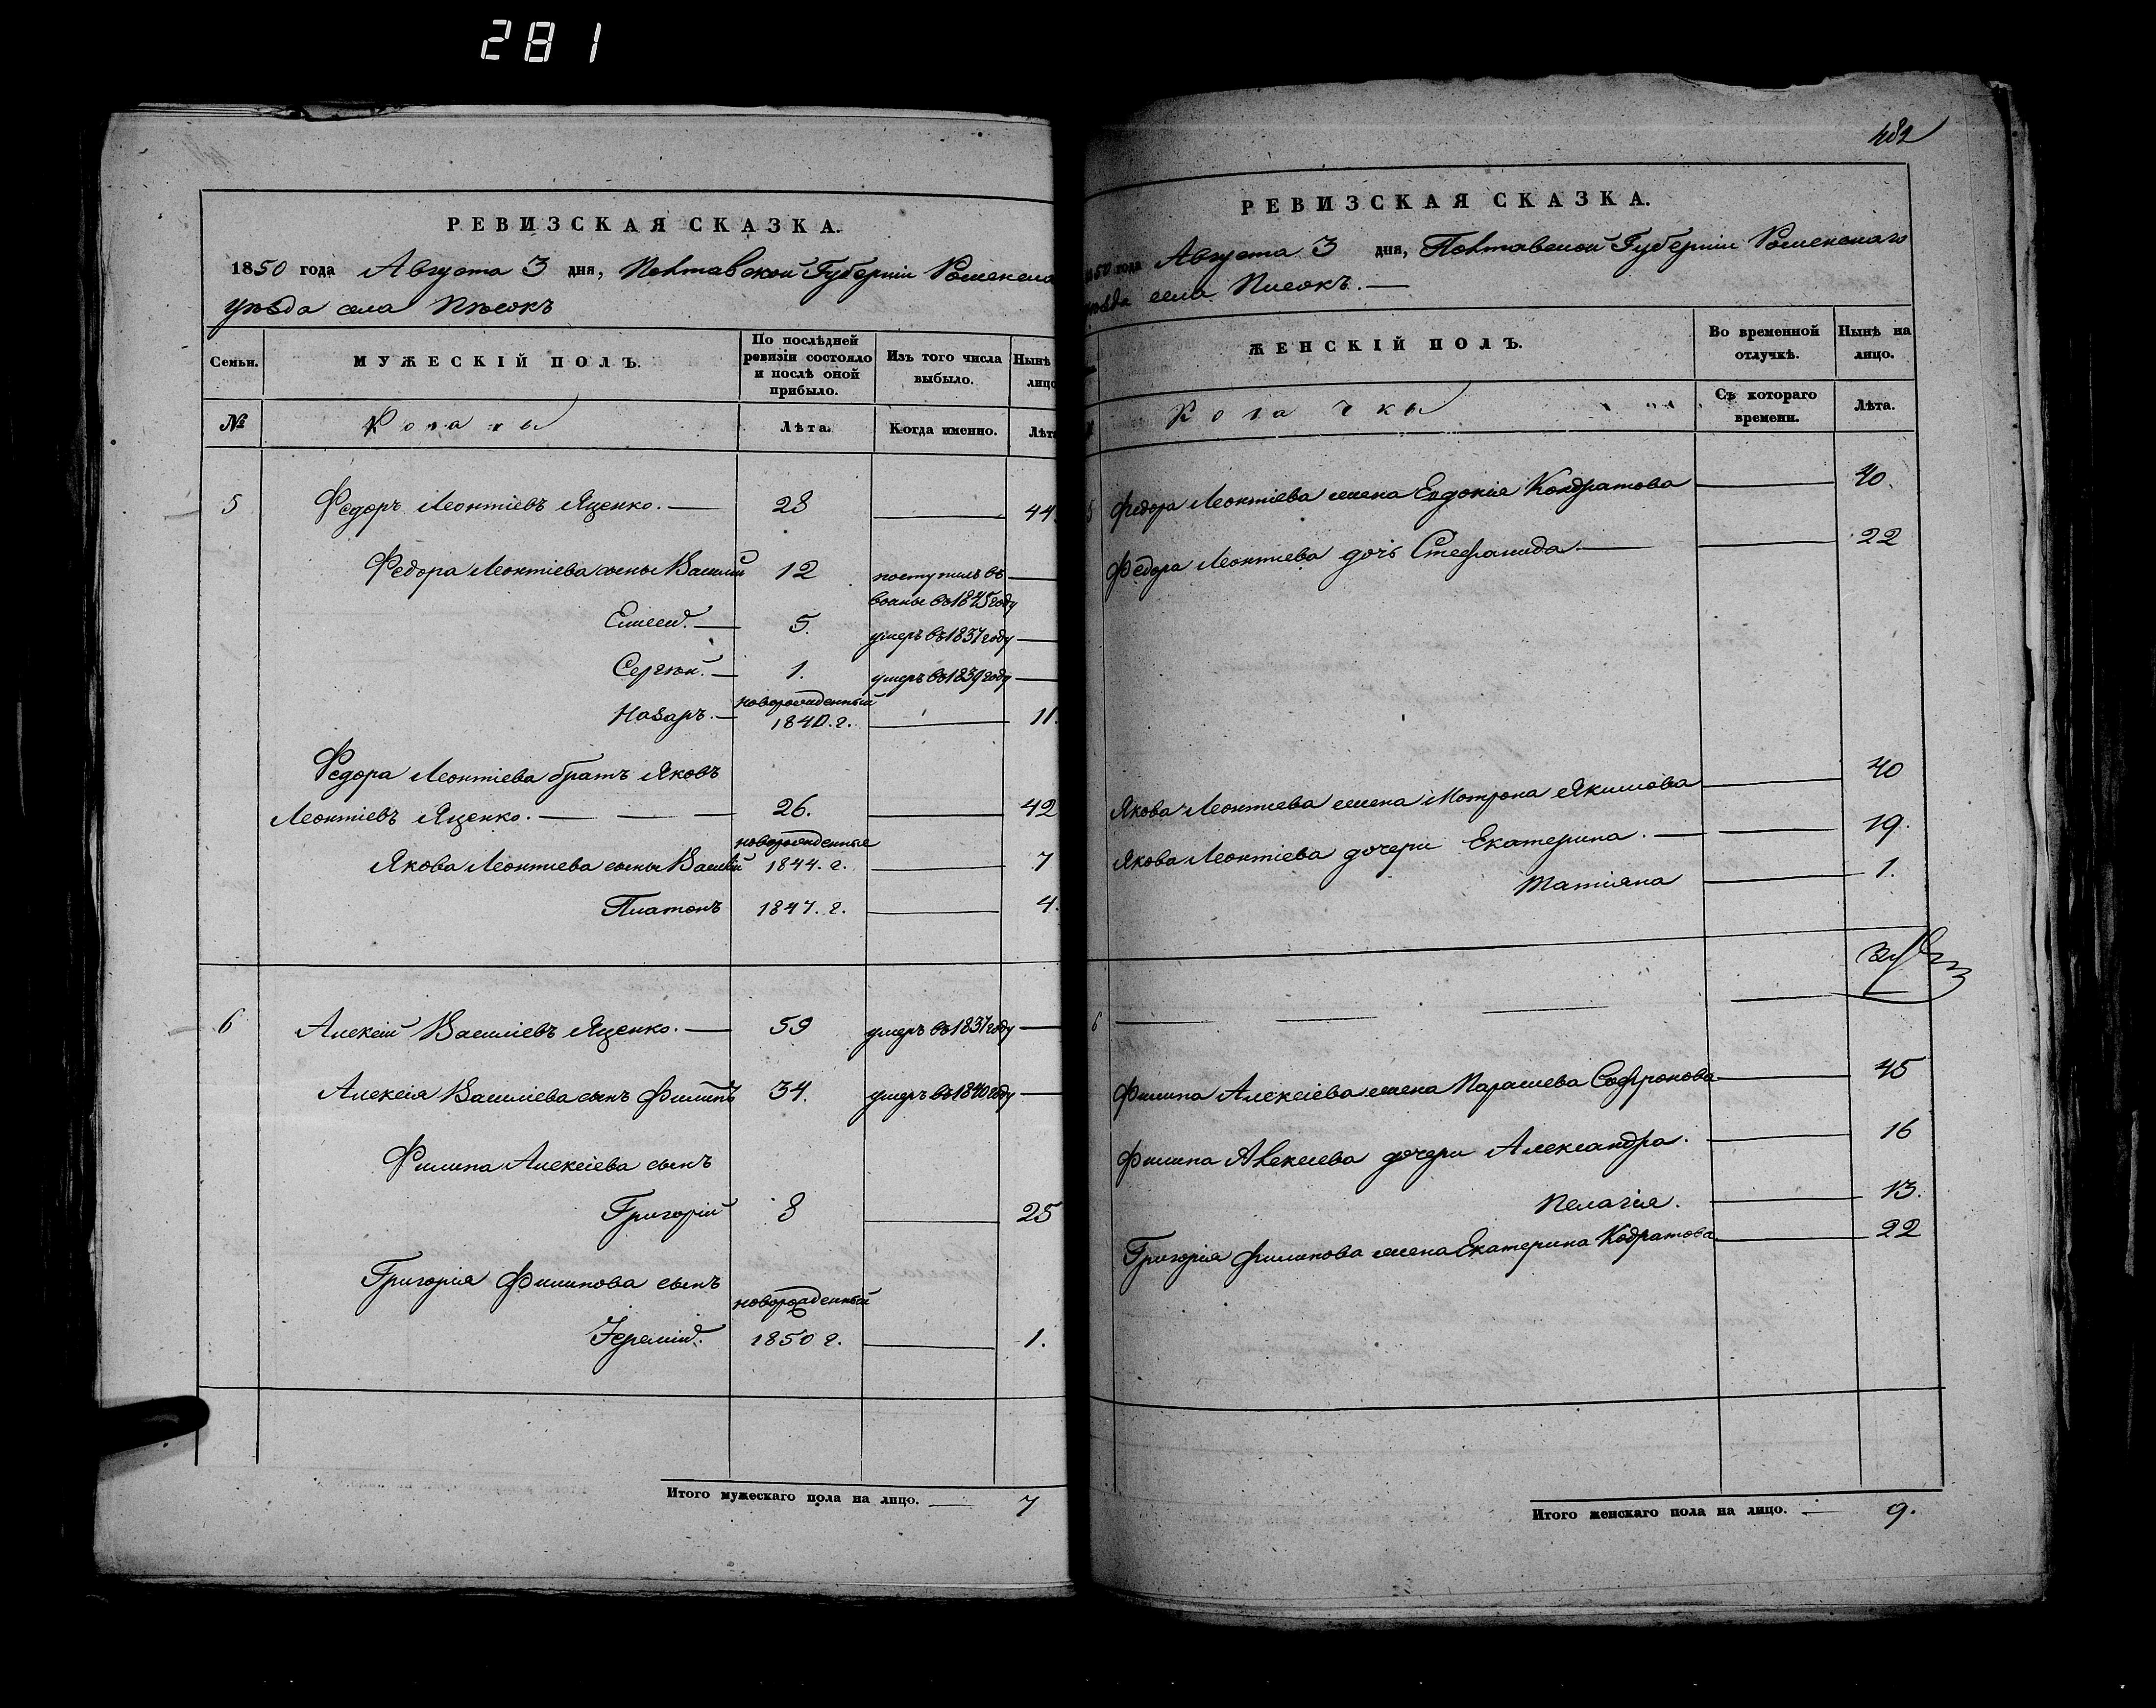 281
РЕВИЗСКАЯ СКАЗКА.
1850 года Августа 3 дня, Полтавской Губерніи Роменска
уѣзда села Пѣсокъ
Семьи.
МУЖЕСКІЙ ПОЛЪ.
По послѣдней
ревизіи состояло
и послѣ оной
прибыло.
Изъ того числа
выбыло.
Нынѣ
лицо
№
Козаки
Лѣта.
Когда именно.
Лѣта
5 Федоръ Леонтіевъ Яценко. 28 44.
Федора Леонтіева сыны Василій 12 поступилъ въ
воины въ 1845 году
Елисей. 5. умеръ въ 1837 году
Сергѣй. 1. умеръ въ 1839 году
Назаръ. новорожденный
1840. г. 11.
Федора Леонтіева братъ Яковъ
Леонтіевъ Яценко. 26. 42
новорожденные
Якова Леонтиева сыны Василій 1844. г. 7
Платонъ 1847. г. 4.
6 Алексій Василіевъ Яценко. 59 умеръ въ 1837 году
Алексія Василіева сынъ Филипъ 34. умеръ въ 1840 году
Филипа Алексіева сынъ
Григорій 8 25
Григорія Филипова сынъ
новорожденный
Іеремій. 1850 г. 1.
Итого мужескаго пола на лицо. 7
482
РЕВИЗСКАЯ СКАЗКА.
1850 года Августа 3 дня, Полтавской Губерніи Роменскаго
уѣзда села Писокъ.
ЖЕНСКІЙ ПОЛЪ.
Во временной
отлучкѣ.
Нынѣ на
лицо.
Козачки
Съ котораго
времени.
Лѣта.
5 Федора Леонтіева жена Евдокія Кондратова 40.
Федора Леонтиева дочь Стефанида. 22
Якова Леонтиева жена Мотрона Якимова 40
Якова Леонтіева дочери Екатерина. 19.
Татіяна 1.
6
Филипа Алексіева жена Параскева Софронова 45
Филипа Алексіева дочери Александра. 16
Пелагія. 13.
Григорія Филипова жена Екатерина Кодратова 22
Итого женскаго пола на лицо. 9.